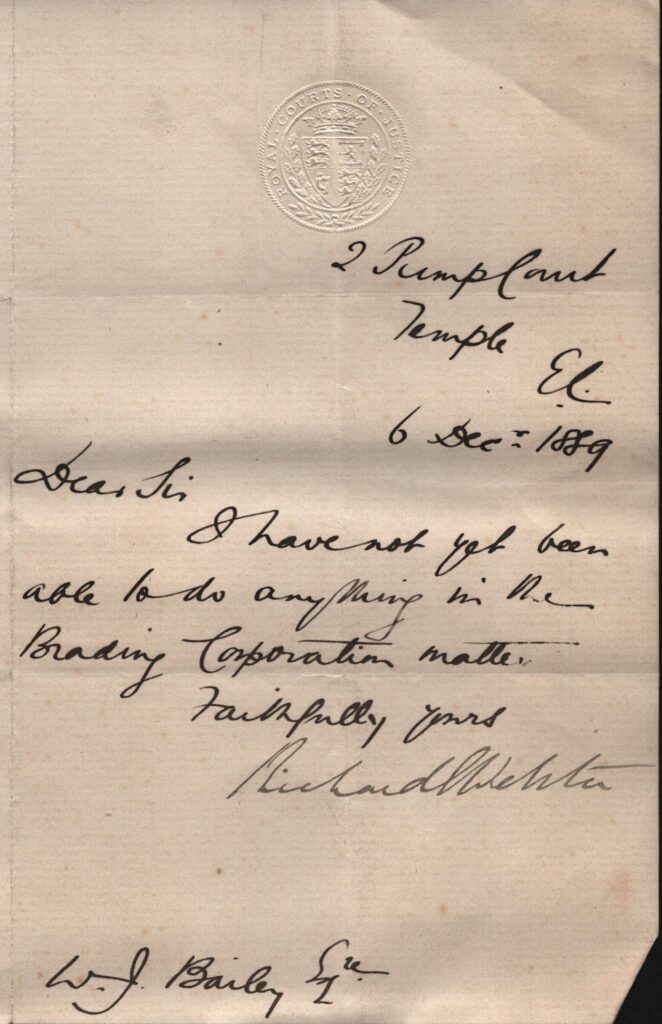 ROYAL · COURTS · OF · JUSTICE
2 Pump Court
Temple
E.C.
6 Decr 1889
Dear Sir
I have not yet been
able to do anything in the
Brading Corporation matter.
Faithfully yours
Richard E Webster
W. J. Bailey Esqre